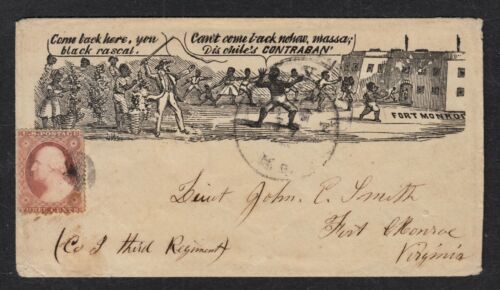 Come back here, you
black rascal.
Can't come back nohow, massa;
Dis chile's CONTRABAN'
FORT MONRO
U.S. POSTAGE
THREE CENTS
Lieut John E. Smith
Fort Monroe
Virginia
(Co I third Regiment)